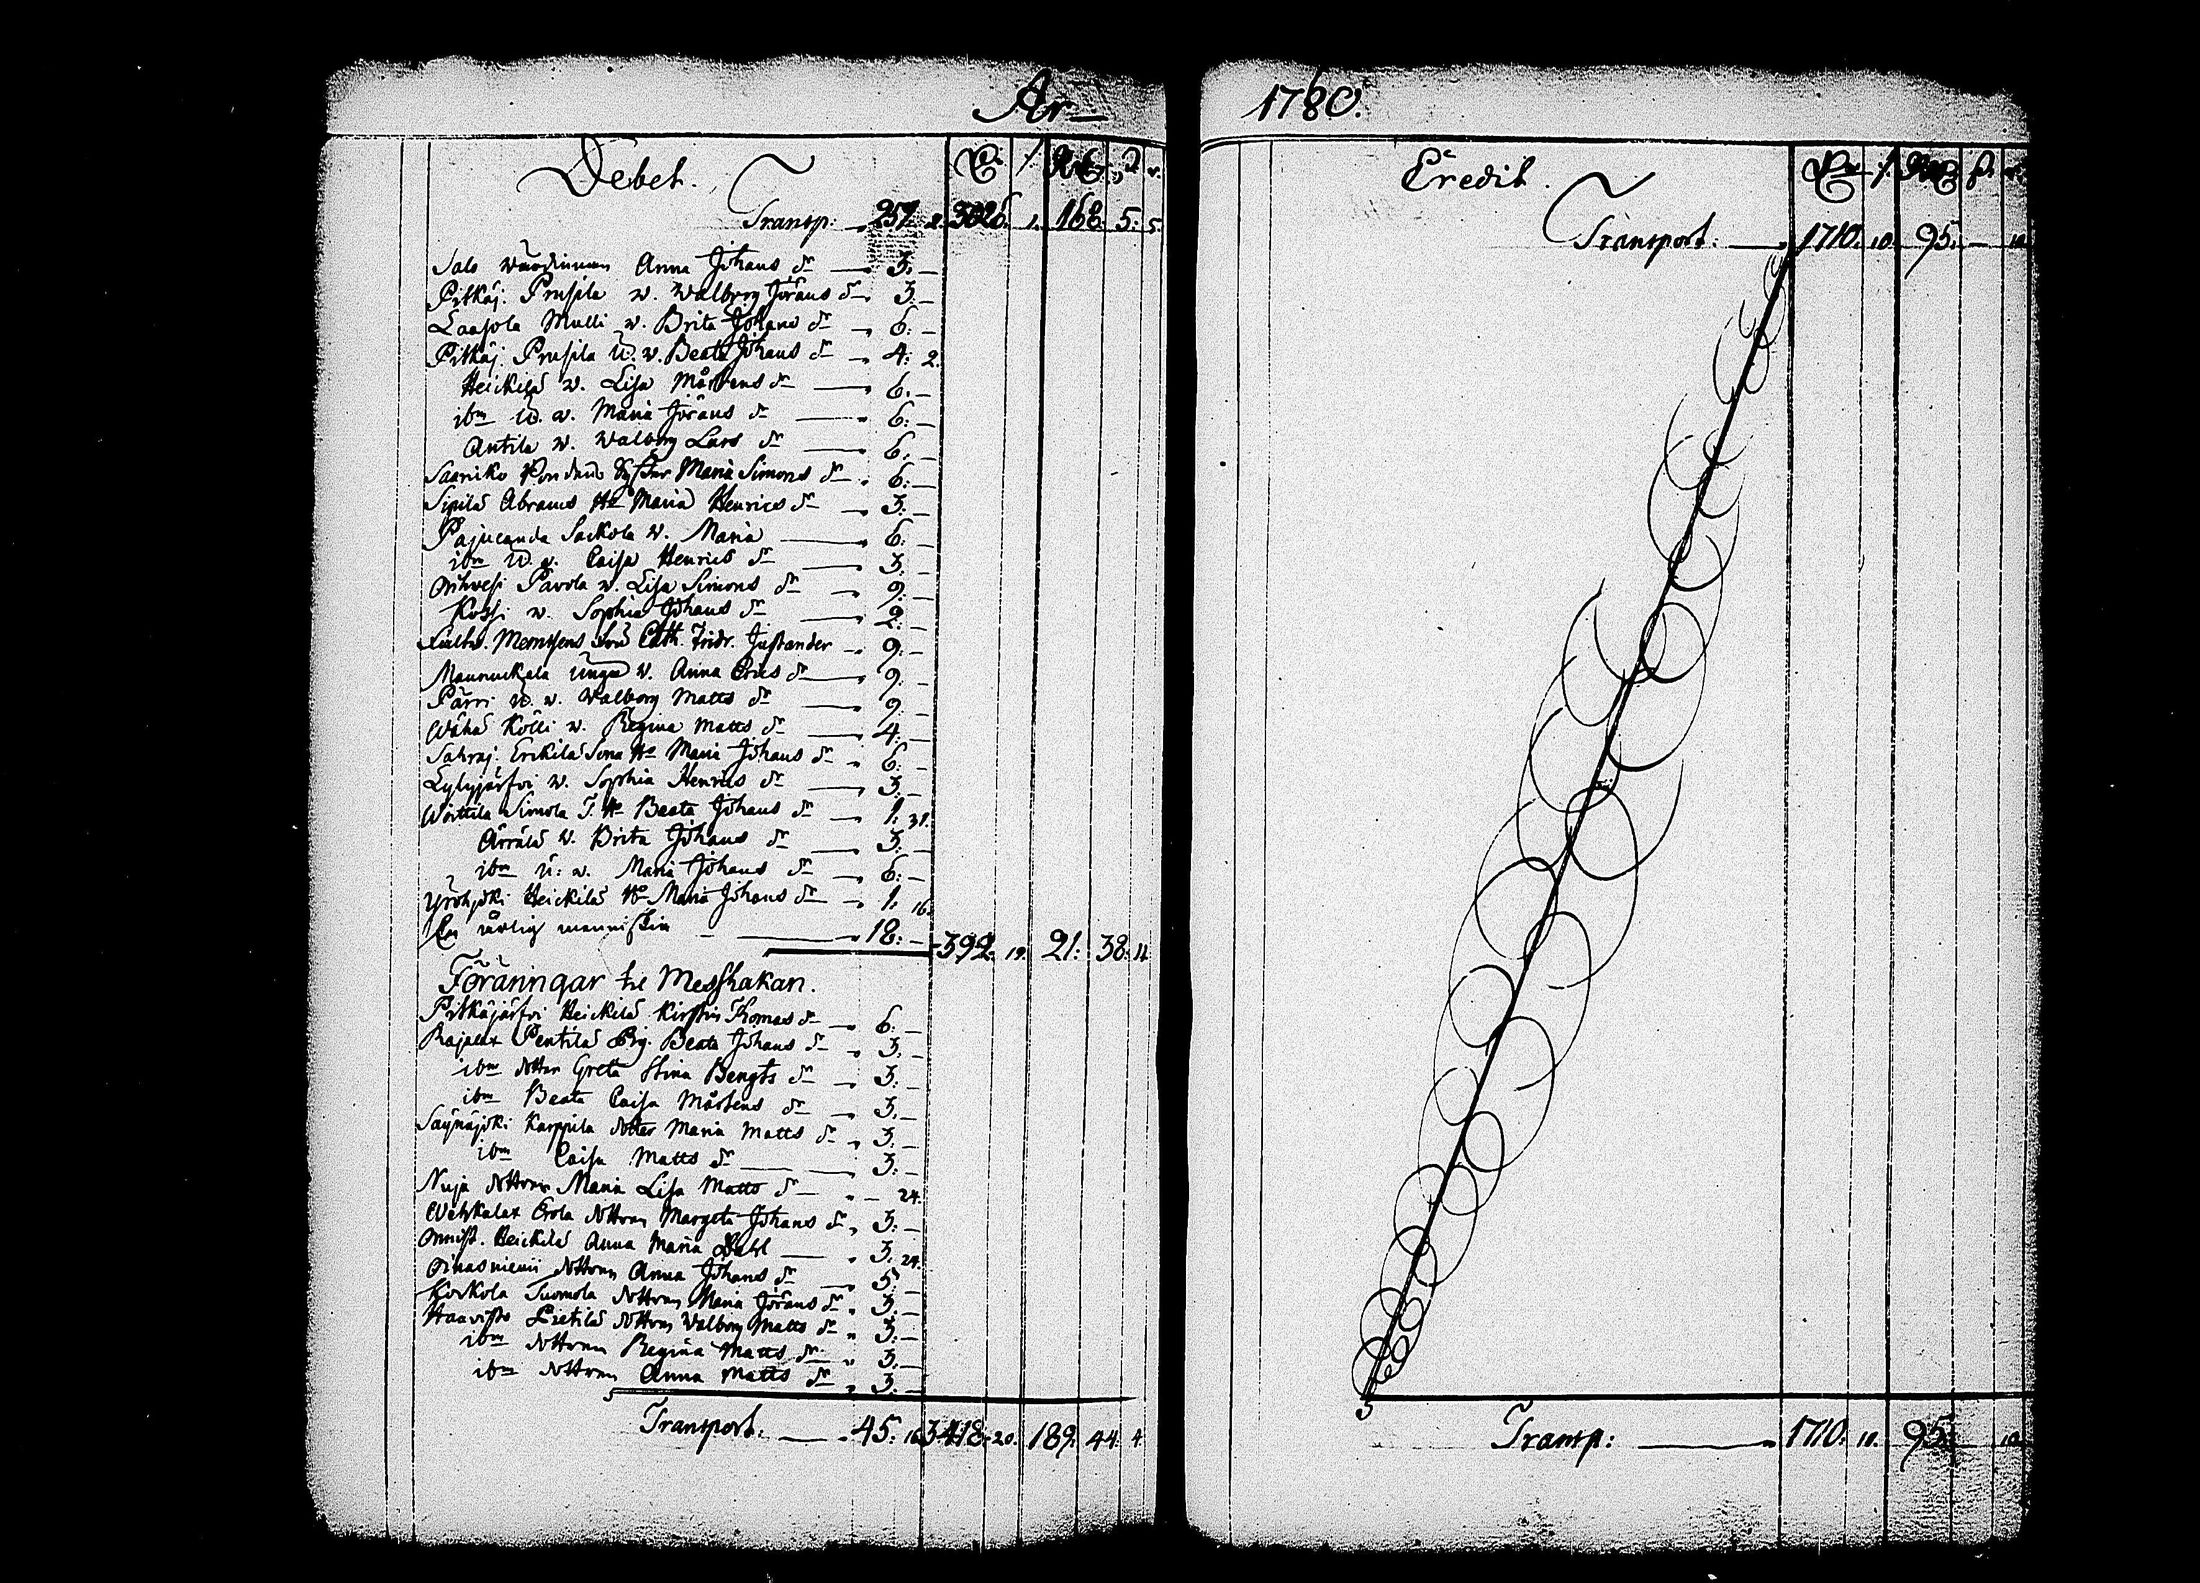 År
Debet.
Transp: 257. 2. 3026. 1. 168. 5. 5.
Salo wärdinnan Anna Johans dr 3. —
Pitkäj. Prusila w. Walborg Jörans dr 3. —
Laasola Mulli w. Brita Johans dr 6. —
Pitkäj. Prusila U. w. Beata Johans dr 4. 2.
Heickilä w. Lisa Mårtens dr 6. —
ibm U. w. Maria Jörans dr 6. —
Antila w. Walborg Lars dr 6. —
Saariko Syster Maria Simons dr 6. —
Sipilä Abrams Ha Maria Henrics dr 3. —
Pajucanda Sackola w. Maria 6. —
ibm U. w. Caisa Henrics dr 3. —
Orihvesi Pavola w. Lisa Simons dr 9. —
Koski w. Sophia Johans dr 2. —
Fältw. Memsens Fru Cath. Fridr. Justander 9. —
Maunuckala unga w. Anna Erics dr 9. —
Pärri U. w. Walborg Matts dr 9. —
Wähä Kölli w. Regina Matts dr 4. —
Sahraj. Erckilä Sona Ha Maria Johans dr 6. —
Lylyjärfvi w. Sophia Henrics dr 3. —
Woittila Simola S. Ha Beata Johans dr 1. 31.
Ärrälä w. Brita Johans dr 3. —
ibm U. w. Maria Johans dr 6. —
Yröhjoki Heickilä Ha Maria Johans dr 1. 16.
En ärlig menniskia 18. — 392. 19. 21. 38. 11.
Föräningar til Messhakan.
Pitkäjärfvi Heickilä Kirstin Thomas dr 6. —
Rajalax Pentilä Pig. Beata Johans dr 3. —
ibm dotter Greta Stina Bengts dr 3. —
ibm Beata Caisa Mårtens dr 3. —
Säynäjoki Karppila dotter Maria Matts dr 3. —
ibm Caisa Matts dr 3. —
Nuja dottren Maria Lisa Matts dr — 24.
Wehkalax Erola dottren Margeta Johans dr 3. —
Onnist. Heickilä Anna Maria Dahl 3. 24.
Oinasniemi dottren Anna Johans dr 5. —
Korkola Tuomola dottren Maria Jörans dr 3. —
Haavisto Pietilä dottren Walborg Matts dr 3. —
ibm dottren Regina Matts dr 3. —
ibm dottren Anna Matts dr 3. —
Transport. 45. 16. 3418. 20. 189. 44. 4.
1780.
Credit.
Transport. 1710. 10. 95. — 10.
Transp: 1710. 10. 95. — 10.